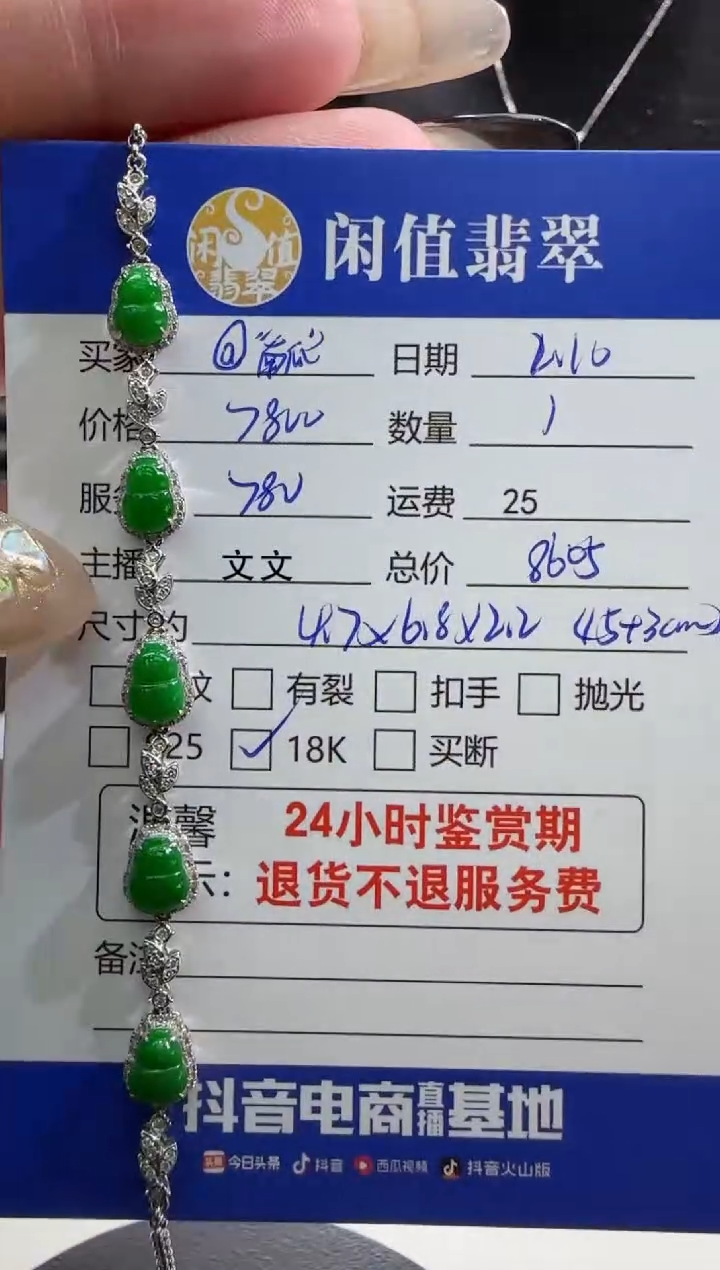 闲值翡翠
闲值翡翠
买家 @“南瓜” 日期 2.10
价格 7800 数量 1
服 780 运费 25
主播 文文 总价 8605
尺寸 约 4.7x6.8x2.2 (4.5+3cm)
纹 有裂 扣手 抛光
925 18K 买断
温馨 24小时鉴赏期
示: 退货不退服务费
备注
抖音电商直播基地
头条 今日头条 抖音 西瓜视频 抖音火山版